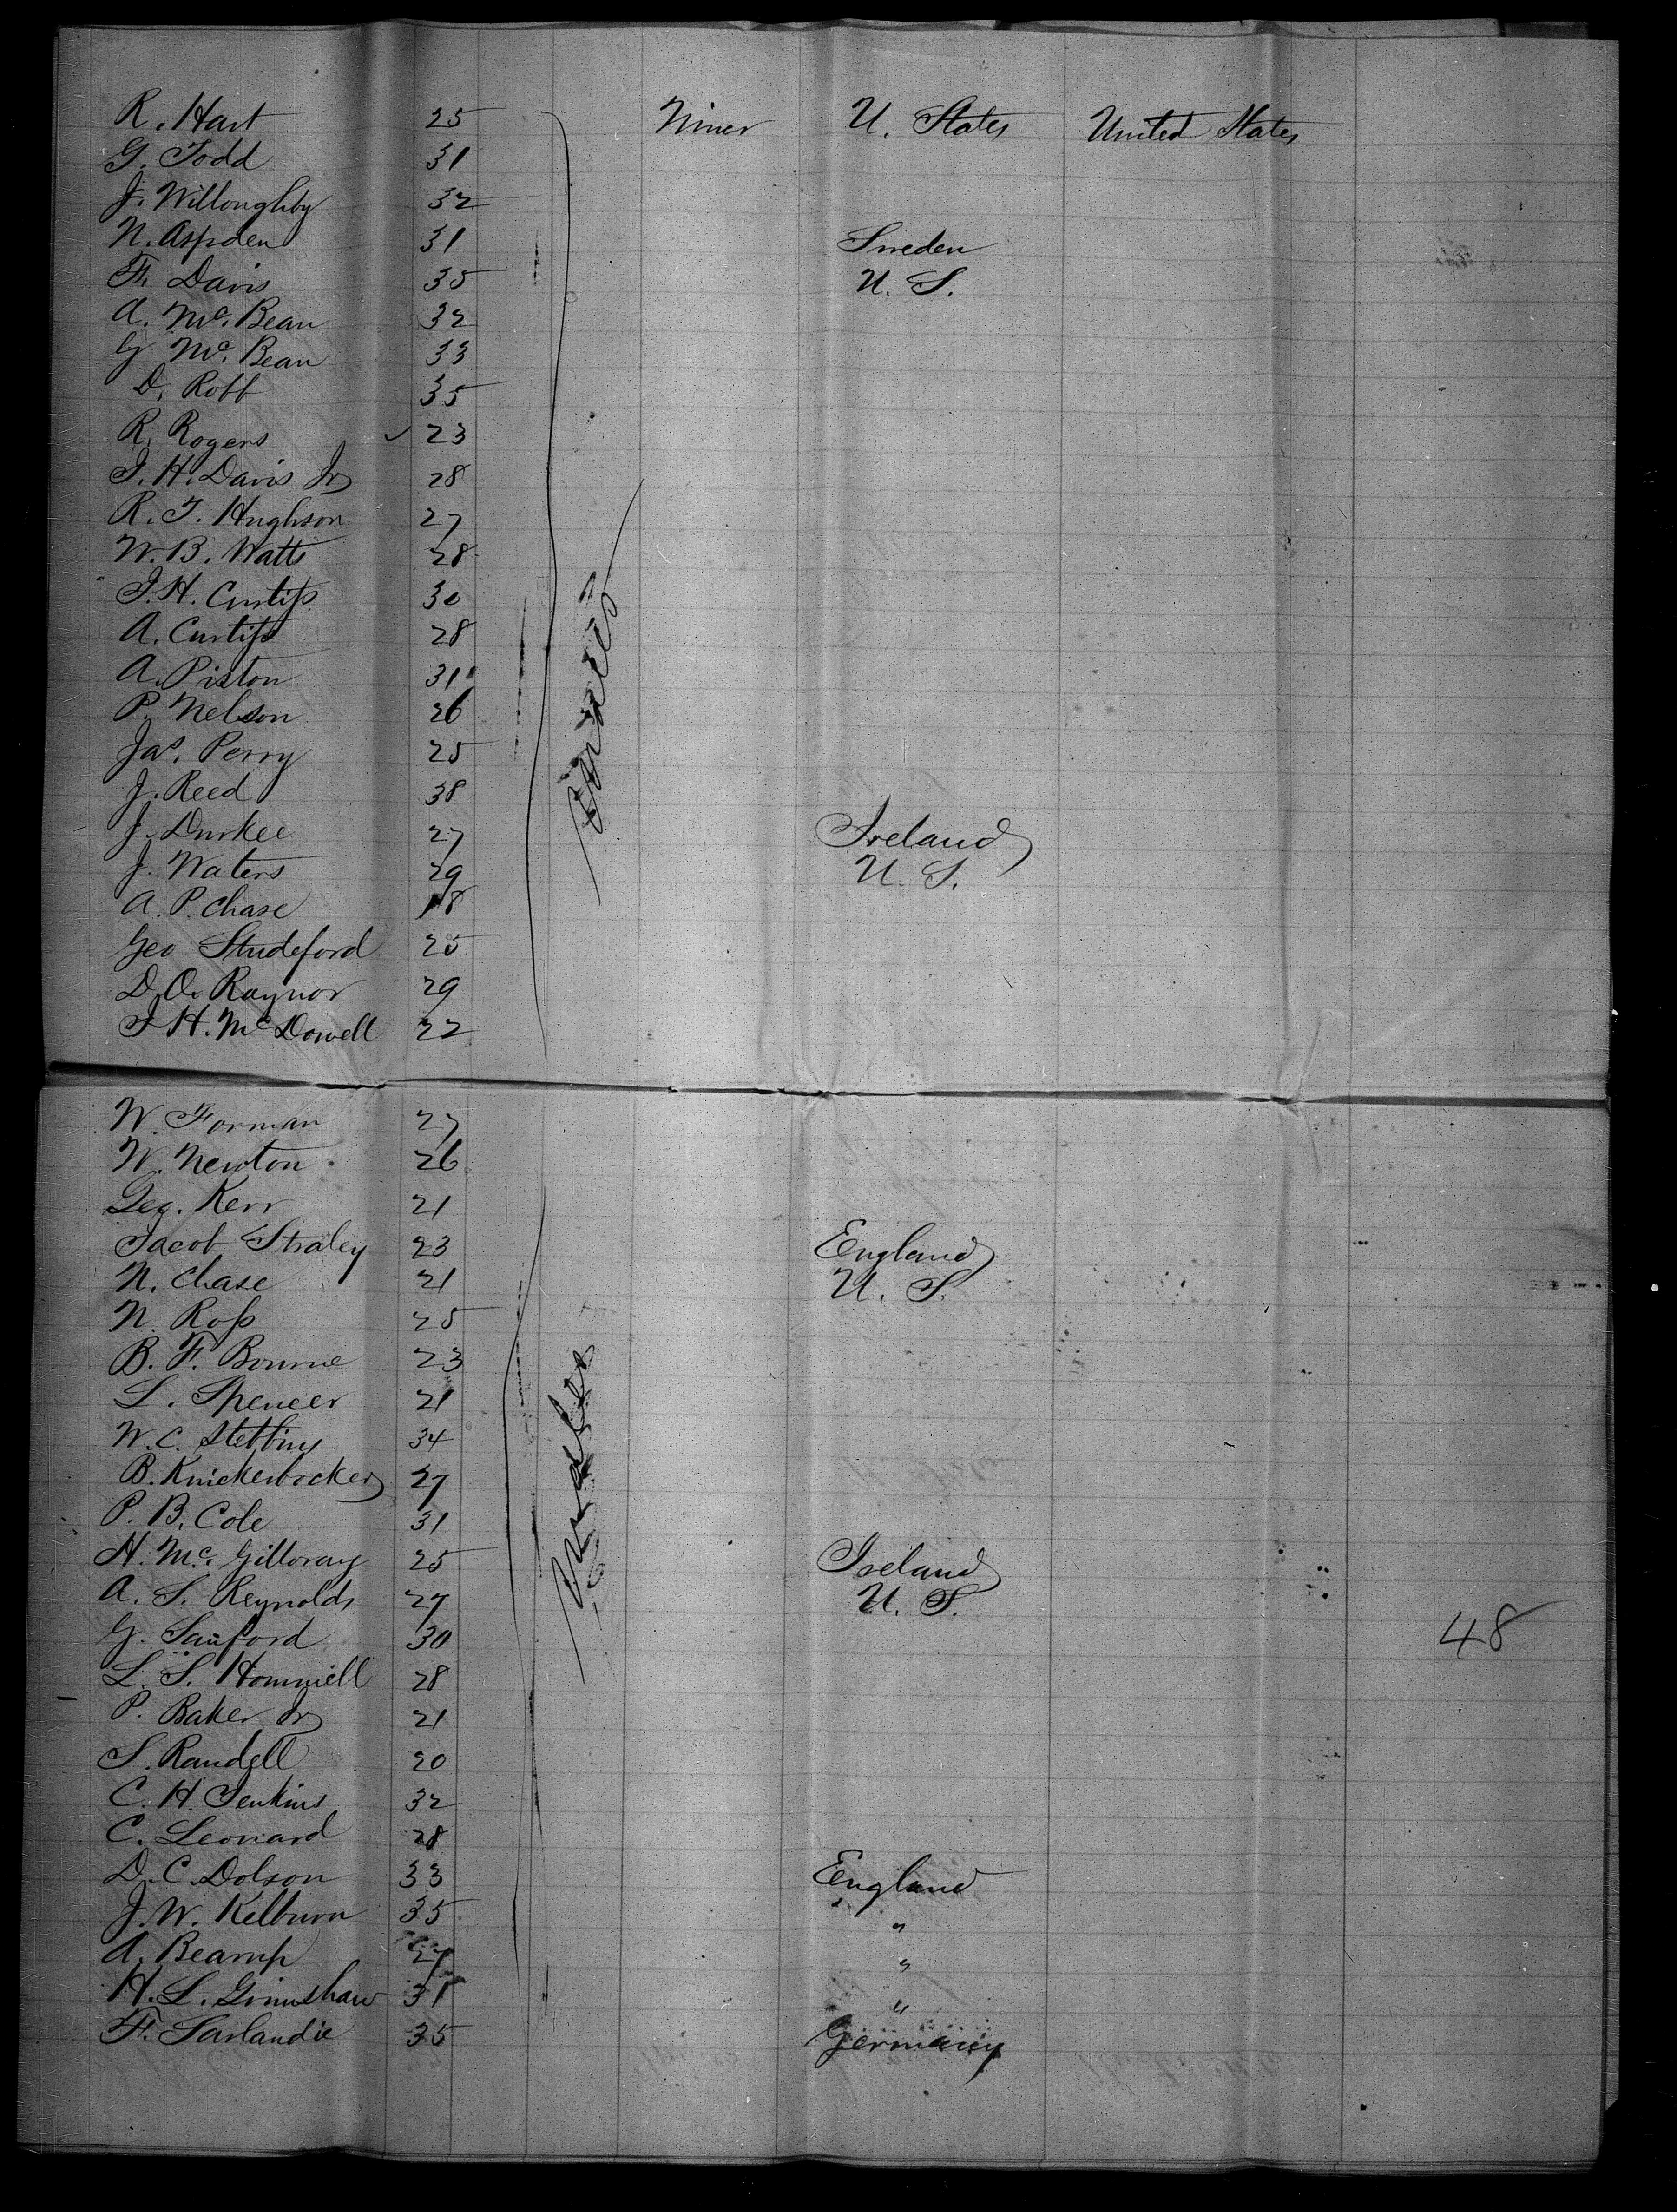 R. Hart 25 Miner U. States United States
G. Todd 31
J. Willoughby 32
N. Aspden 31 Sweden
F. Davis 35 U. S.
A. Mc. Bean 32
G Mc. Bean 33
D. Robb 35
R. Rogers ✓ 23
J. H. Davis Jr 28
R. T. Hughson 27
W. B. Watts 28
J. H. Curtiss 30
A. Curtiss 28
A. Piston 31
P. Nelson 26
Jas. Perry 25
J. Reed 38
J. Durkee 27 Ireland
J. Waters 29 U. S.
A. P. Chase 18
Geo Studeford 25
D. O. Raynor 29
J H. Mc Dowell 22
Males
W. Forman 27
W. Newton 26
Geo. Kerr 21
Jacob Straley 23 England
N. Chase 21 U. S.
N. Ross 25
B. F. Bourne 23
L. Spencer 21
W. C. Stebbins 34
B. Knickerbocker 27
P. B. Cole 31
H. Mc. Gilloray 25 Ireland
A. S. Reynolds 27 U. S.
G. Sanford 30 48
L. S. Hommell 28
P. Baker Jr 21
S. Randell 20
C. H. Jenkins 32
C. Leonard 28
D. C. Dolson 33 England
J. W. Kelburn 35 "
A. Bearup 27 "
H. L. Grimshaw 31 "
F. Sarlandie 35 Germany